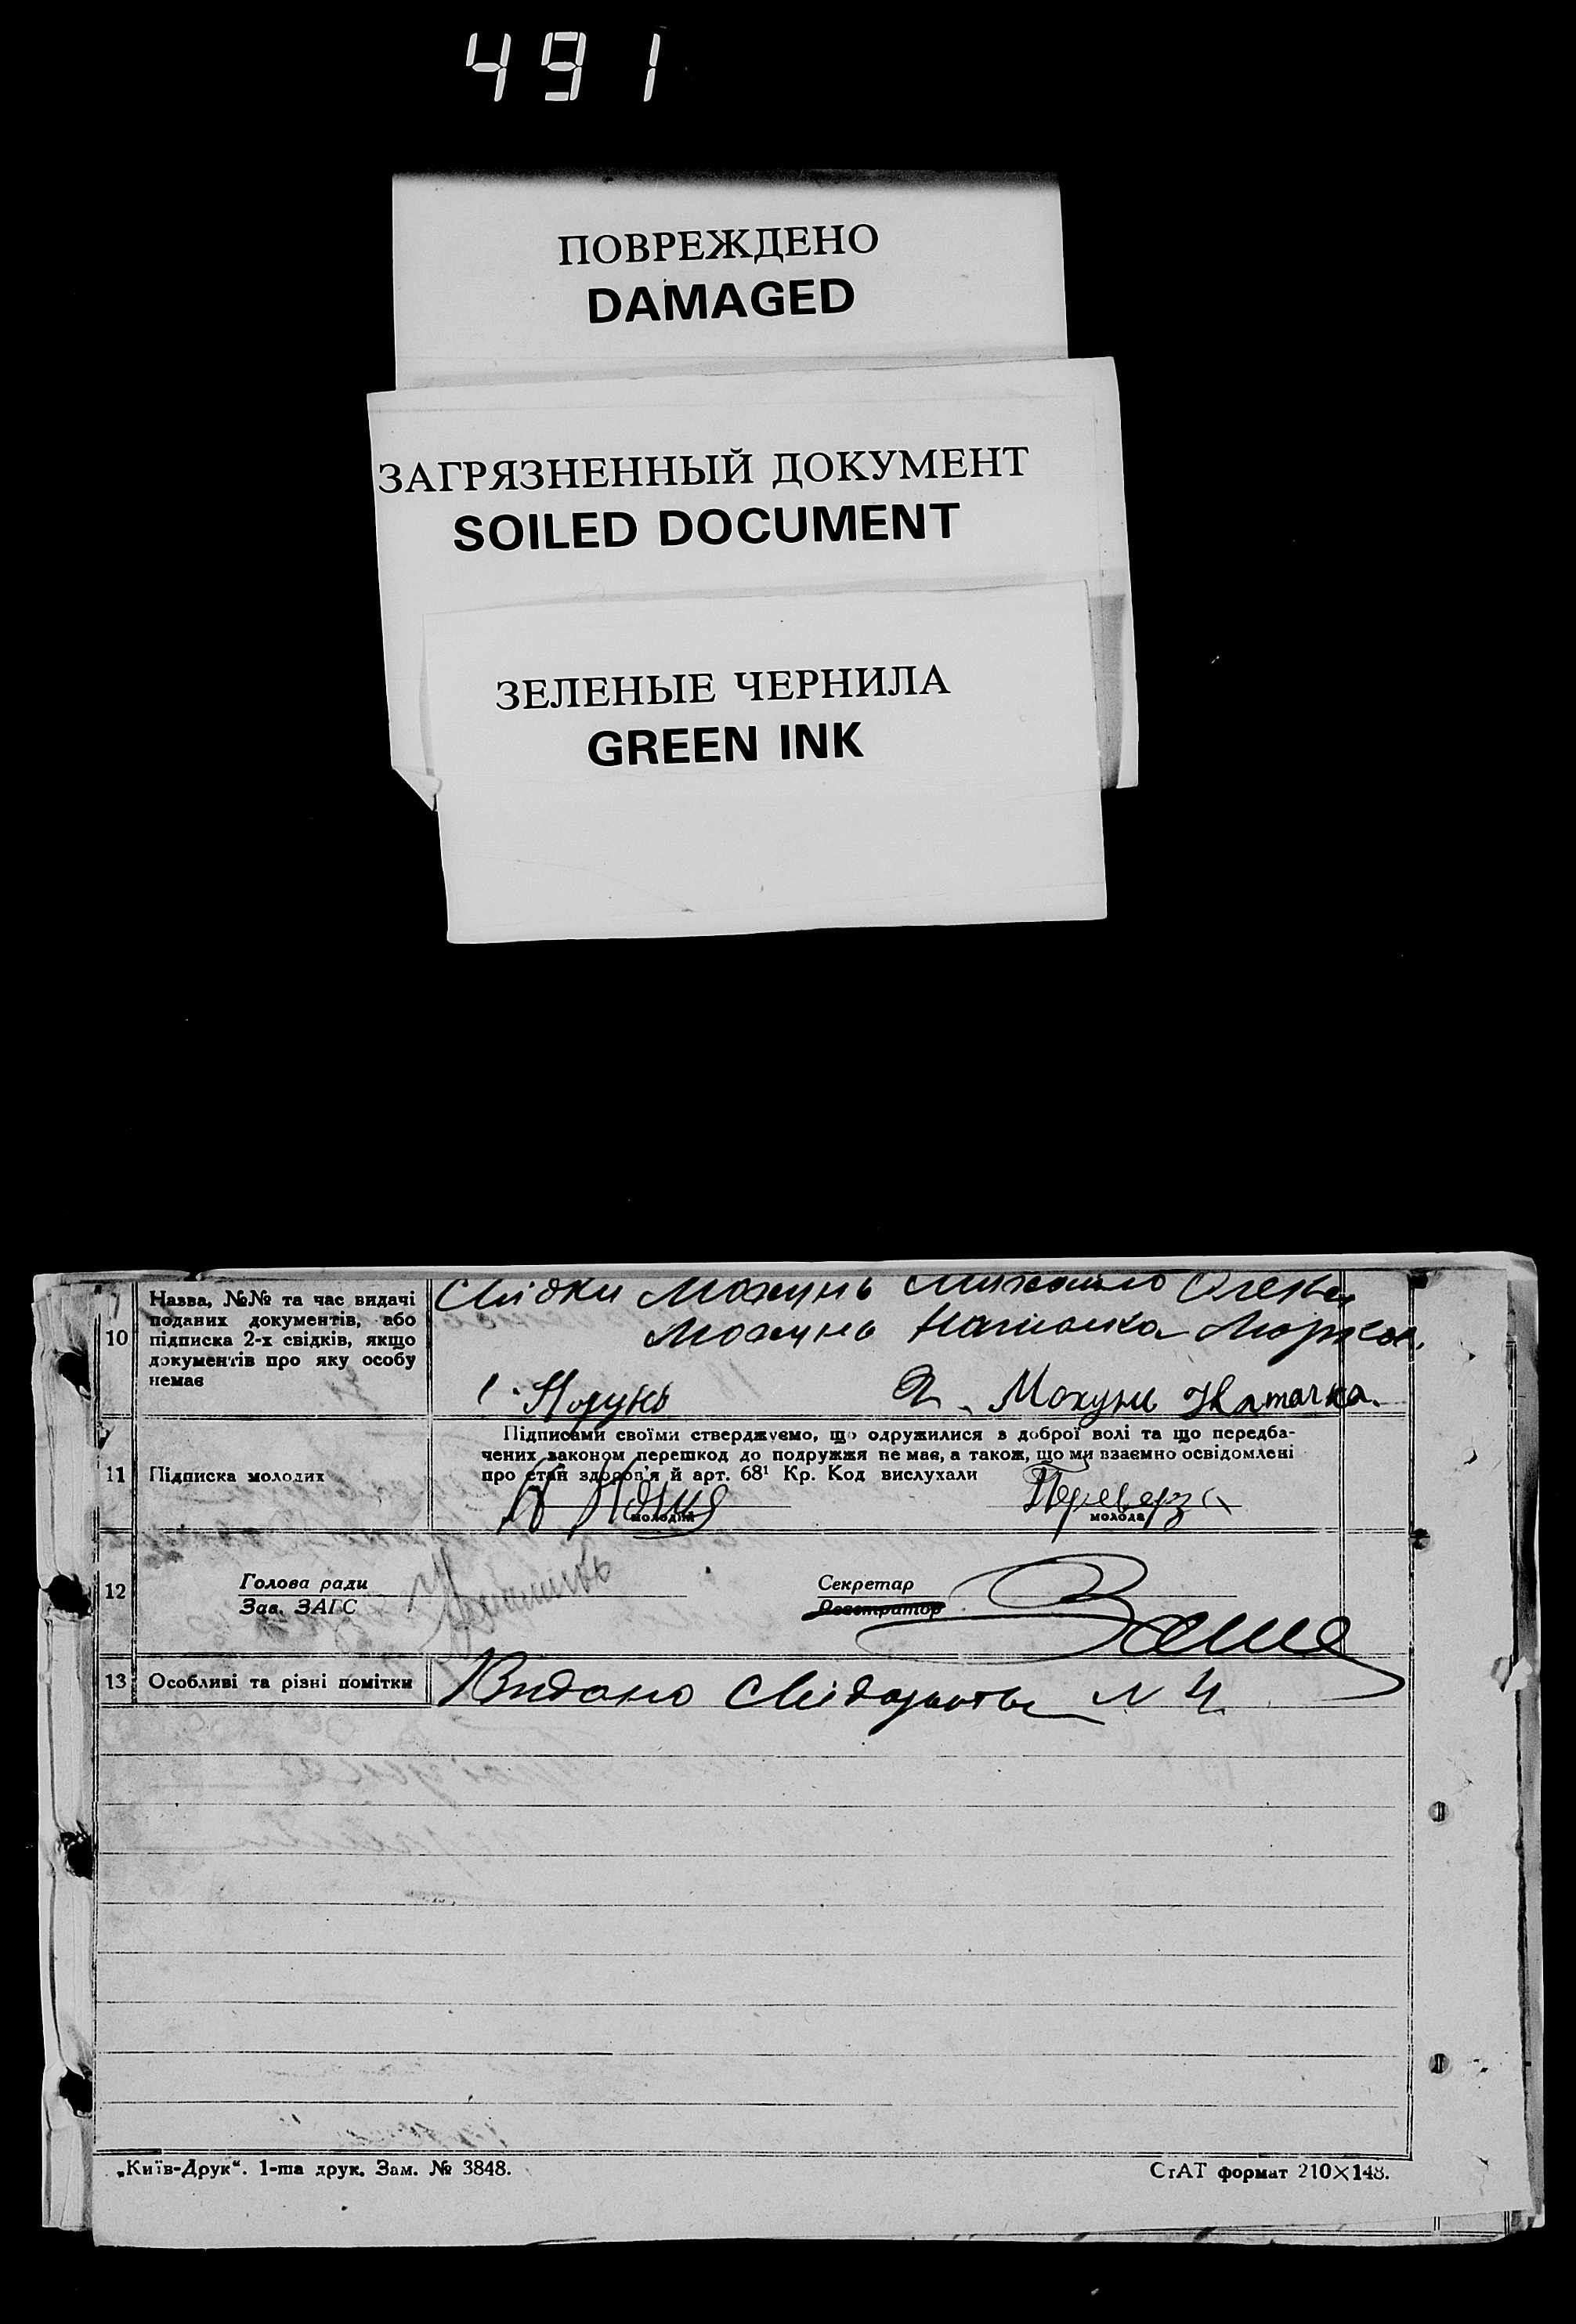 491
ПОВРЕЖДЕНО
DAMAGED
ЗАГРЯЗНЕННЫЙ ДОКУМЕНТ
SOILED DOCUMENT
ЗЕЛЕНЫЕ ЧЕРНИЛА
GREEN INK
10
Назва, №№ та час видачі
поданих документів, або
підписка 2-х свідків, якщо
документів про яку особу
немає
Свідки Мохунь Михайло
Мохунь Наталка
2. Мохунь Наталка.
11
Підписка молодих
Підписами своїми стверджуємо, що одружилися з доброї волі та що передба-
чених законом перешкод до подружжя не має, а також, що ми взаємно освідомлені
про стан здоров'я й арт. 68¹ Кр. Код вислухали
молодий
молода
12
Голова ради
Зав. ЗАГС
Секретар
Реєстратор
13
Особливі та різні помітки
Видано Свідоцтво N 4
„Київ-Друк“. 1-ша друк. Зам. № 3848.
СтАТ формат 210×148.